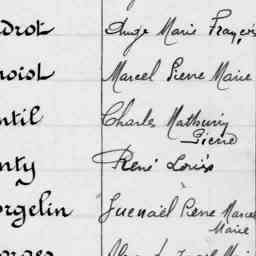 drot Ange Marie François
noist Marcel Pierre Marie
ntil Charles Mathurin
Pierre
nty René Louis
orgelin Guenaël Pierre Marcel
Marie